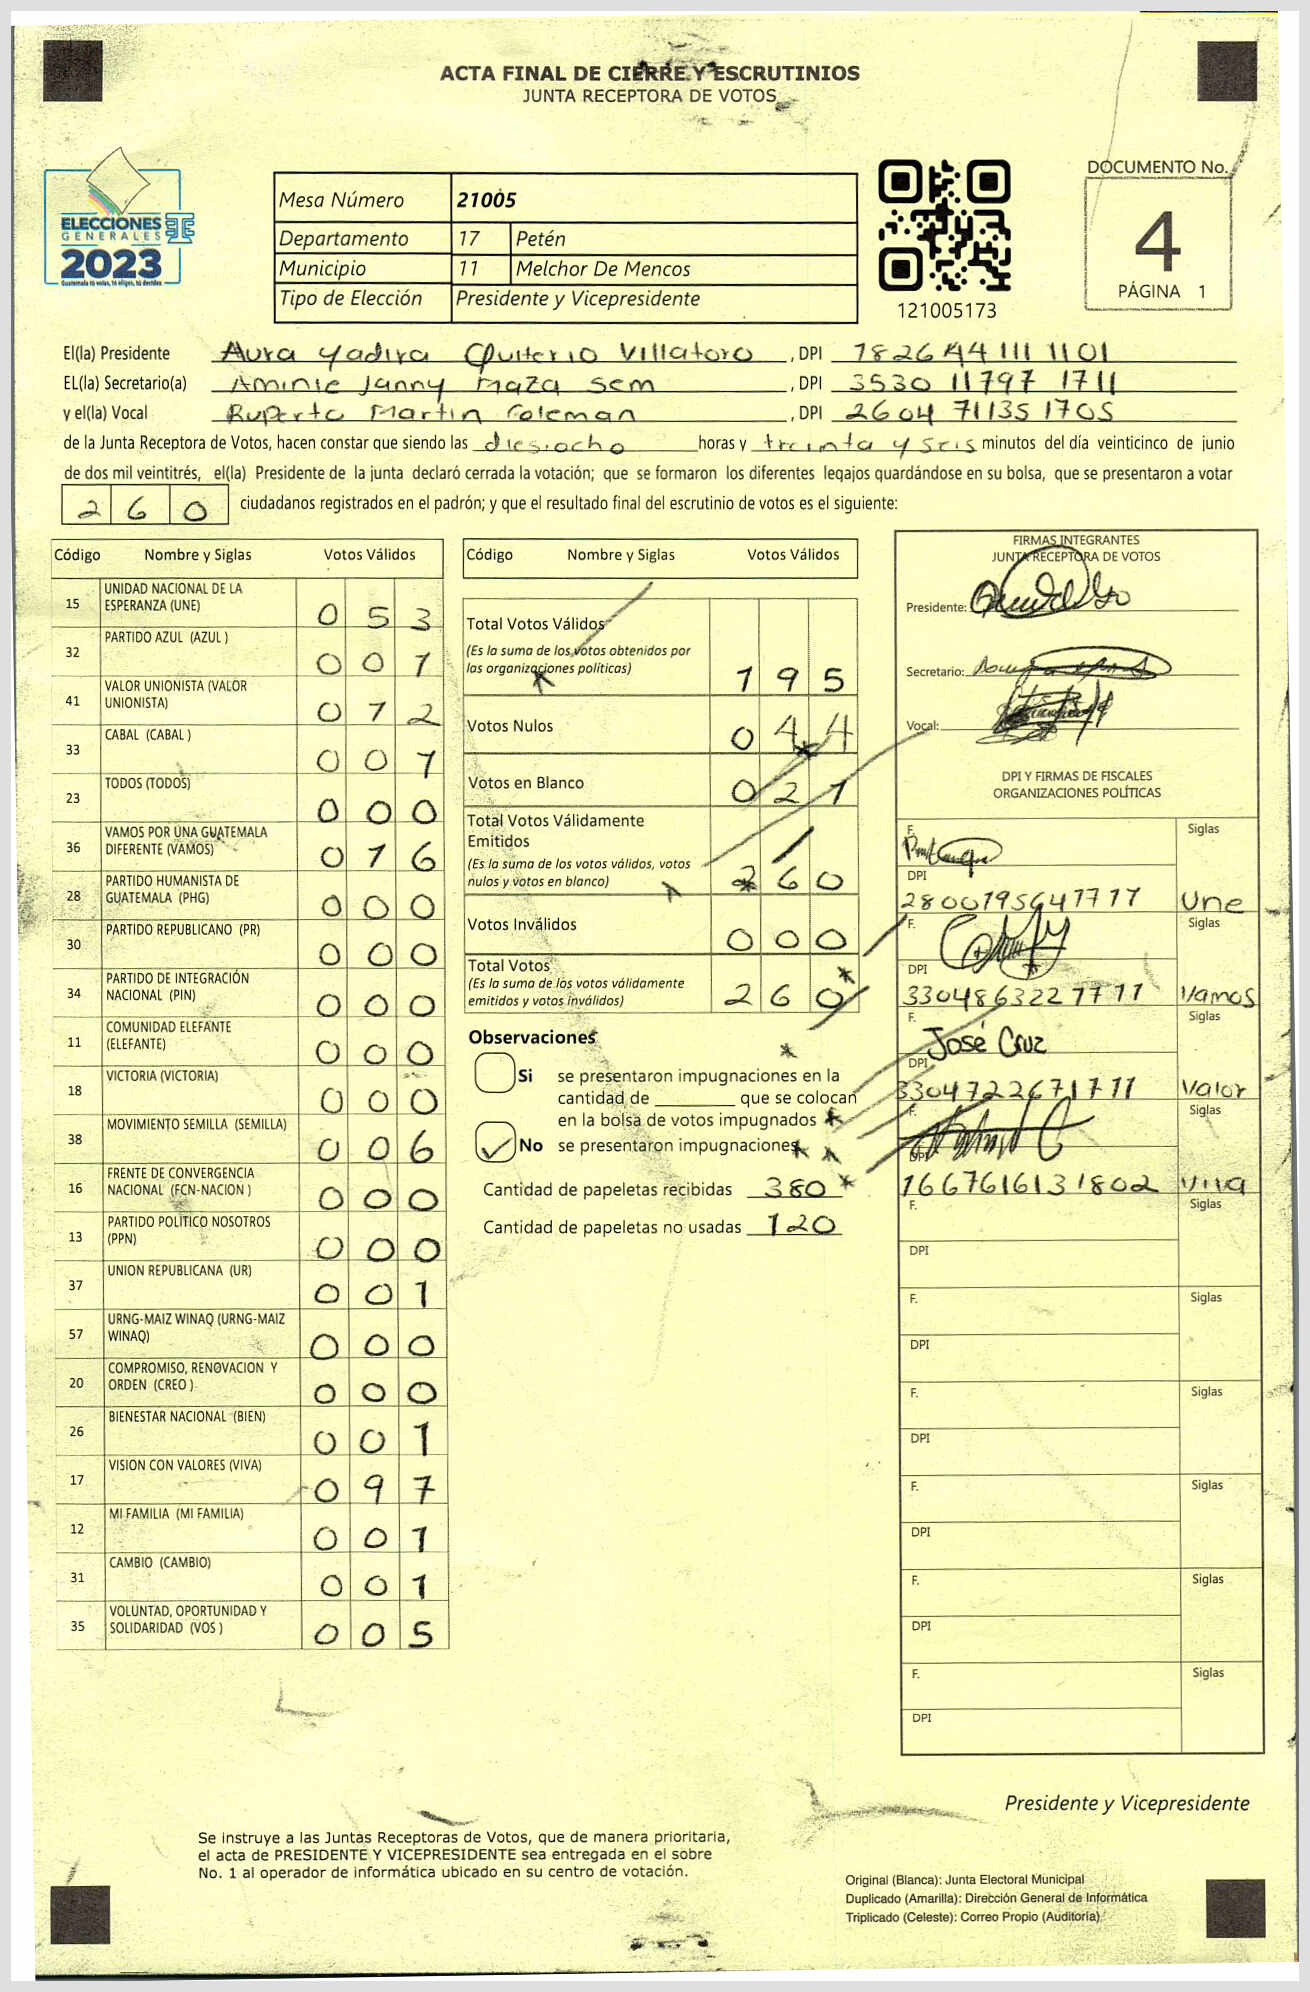 ACTA FINAL DE CIERRE Y ESCRUTINIOS
JUNTA RECEPTORA DE VOTOS
ELECCIONES
GENERALES
2023
Guatemala tú votas, tú eliges, tú decides
Mesa Número 21005
Departamento 17 Petén
Municipio 11 Melchor De Mencos
Tipo de Elección Presidente y Vicepresidente
121005173
DOCUMENTO No.
4
PÁGINA 1
El(la) Presidente Aura Yadira Quiterio Villatoro , DPI 1826 144 111 1101
EL(la) Secretario(a) Aminie Janny Maza Sem , DPI 3530 11797 1711
y el(la) Vocal Ruperto Martin Coleman , DPI 2604 71135 1705
de la Junta Receptora de Votos, hacen constar que siendo las diesiocho horas y treinta y seis minutos del día veinticinco de junio
de dos mil veintitrés, el(la) Presidente de la junta declaró cerrada la votación; que se formaron los diferentes legajos quardándose en su bolsa, que se presentaron a votar
260 ciudadanos registrados en el padrón; y que el resultado final del escrutinio de votos es el siguiente:
Código Nombre y Siglas Votos Válidos
15 UNIDAD NACIONAL DE LA ESPERANZA (UNE) 053
32 PARTIDO AZUL (AZUL ) 001
41 VALOR UNIONISTA (VALOR UNIONISTA) 012
33 CABAL (CABAL ) 001
23 TODOS (TODOS) 000
36 VAMOS POR UNA GUATEMALA DIFERENTE (VAMOS) 016
28 PARTIDO HUMANISTA DE GUATEMALA (PHG) 000
30 PARTIDO REPUBLICANO (PR) 000
34 PARTIDO DE INTEGRACIÓN NACIONAL (PIN) 000
11 COMUNIDAD ELEFANTE (ELEFANTE) 000
18 VICTORIA (VICTORIA) 000
38 MOVIMIENTO SEMILLA (SEMILLA) 006
16 FRENTE DE CONVERGENCIA NACIONAL (FCN-NACION ) 000
13 PARTIDO POLITICO NOSOTROS (PPN) 000
37 UNION REPUBLICANA (UR) 001
57 URNG-MAIZ WINAQ (URNG-MAIZ WINAQ) 000
20 COMPROMISO, RENOVACION Y ORDEN (CREO ) 000
26 BIENESTAR NACIONAL (BIEN) 001
17 VISION CON VALORES (VIVA) 097
12 MI FAMILIA (MI FAMILIA) 001
31 CAMBIO (CAMBIO) 001
35 VOLUNTAD, OPORTUNIDAD Y SOLIDARIDAD (VOS ) 005
Código Nombre y Siglas Votos Válidos
Total Votos Válidos
(Es la suma de los votos obtenidos por
las organizaciones políticas) 195
Votos Nulos 044
Votos en Blanco 021
Total Votos Válidamente
Emitidos
(Es la suma de los votos válidos, votos
nulos y votos en blanco) 260
Votos Inválidos 000
Total Votos
(Es la suma de los votos válidamente
emitidos y votos inválidos) 260
Observaciones
Si se presentaron impugnaciones en la
cantidad de ________ que se colocan
en la bolsa de votos impugnados
No se presentaron impugnaciones
Cantidad de papeletas recibidas 380
Cantidad de papeletas no usadas 120
FIRMAS INTEGRANTES
JUNTA RECEPTORA DE VOTOS
Presidente:
Secretario:
Vocal:
DPI Y FIRMAS DE FISCALES
ORGANIZACIONES POLÍTICAS
F. Siglas
DPI 2800195641711 Une
F. Siglas
DPI 3304863221711 Vamos
F. José Cruz Siglas
DPI 3304722671711 Valor
F. Siglas
DPI 1667616131802 Viva
F. Siglas
DPI
F. Siglas
DPI
F. Siglas
DPI
F. Siglas
DPI
F. Siglas
DPI
F. Siglas
DPI
Presidente y Vicepresidente
Se instruye a las Juntas Receptoras de Votos, que de manera prioritaria,
el acta de PRESIDENTE Y VICEPRESIDENTE sea entregada en el sobre
No. 1 al operador de informática ubicado en su centro de votación.
Original (Blanca): Junta Electoral Municipal
Duplicado (Amarilla): Dirección General de Informática
Triplicado (Celeste): Correo Propio (Auditoria)